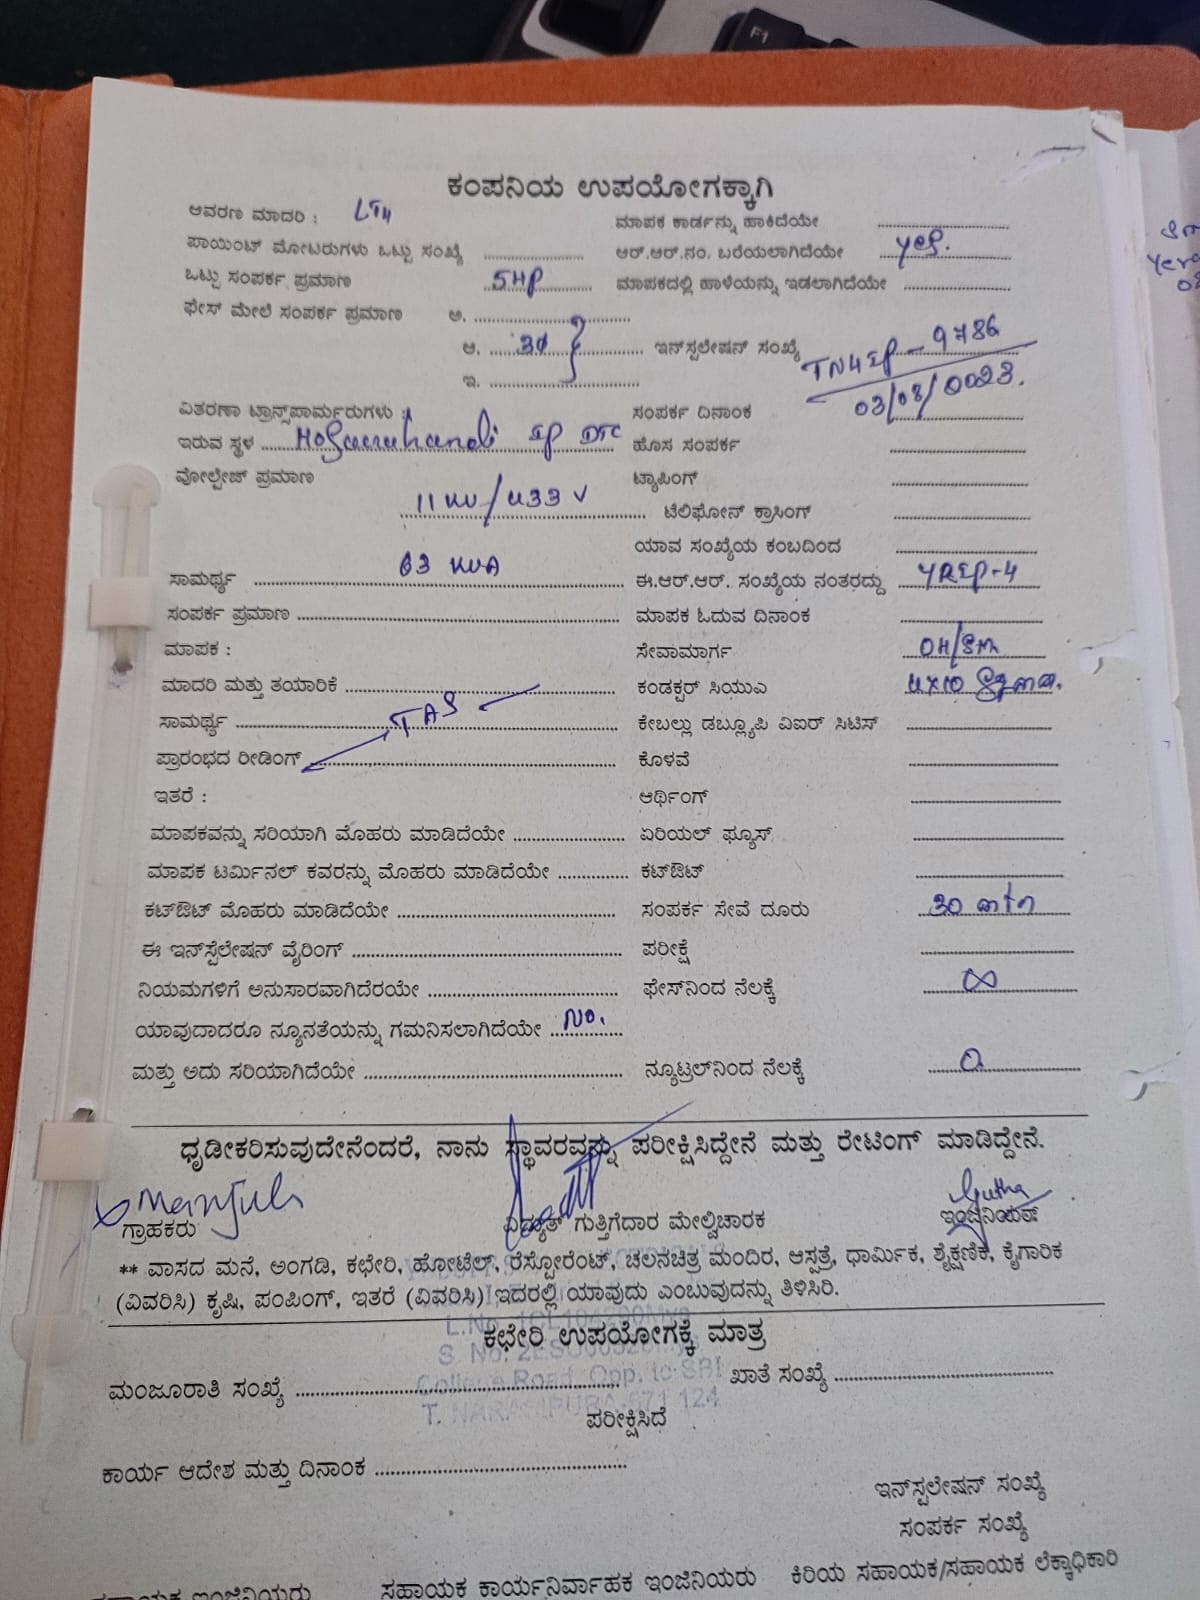 F1
ಕಂಪನಿಯ ಉಪಯೋಗಕ್ಕಾಗಿ
ಆವರಣ ಮಾದರಿ : LT4 ಮಾಪಕ ಕಾರ್ಡನ್ನು ಹಾಕಿದೆಯೇ
ಪಾಯಿಂಟ್ ಮೋಟರುಗಳು ಒಟ್ಟು ಸಂಖ್ಯೆ ಆರ್.ಆರ್.ನಂ. ಬರೆಯಲಾಗಿದೆಯೇ yes.
ಒಟ್ಟು ಸಂಪರ್ಕ ಪ್ರಮಾಣ 5HP ಮಾಪಕದಲ್ಲಿ ಹಾಳೆಯನ್ನು ಇಡಲಾಗಿದೆಯೇ
ಫೇಸ್ ಮೇಲೆ ಸಂಪರ್ಕ ಪ್ರಮಾಣ ಅ.
ಆ. 3Ø ಇನ್‌ಸ್ಟಲೇಷನ್ ಸಂಖ್ಯೆ TN4IP-9786
ಇ.
ವಿತರಣಾ ಟ್ರಾನ್ಸ್‌ಫಾರ್ಮರುಗಳು : ಸಂಪರ್ಕ ದಿನಾಂಕ 03/08/2023.
ಇರುವ ಸ್ಥಳ IP DTC ಹೊಸ ಸಂಪರ್ಕ
ವೋಲ್ಟೇಜ್ ಪ್ರಮಾಣ ಟ್ಯಾಪಿಂಗ್
11 KV/433 V ಟೆಲಿಫೋನ್ ಕ್ರಾಸಿಂಗ್
ಯಾವ ಸಂಖ್ಯೆಯ ಕಂಬದಿಂದ
ಸಾಮರ್ಥ್ಯ 63 KVA ಈ.ಆರ್.ಆರ್. ಸಂಖ್ಯೆಯ ನಂತರದ್ದು YRIP-4
ಸಂಪರ್ಕ ಪ್ರಮಾಣ ಮಾಪಕ ಓದುವ ದಿನಾಂಕ
ಮಾಪಕ : ಸೇವಾಮಾರ್ಗ OH/SM
ಮಾದರಿ ಮತ್ತು ತಯಾರಿಕೆ ಕಂಡಕ್ಟರ್ ಸಿಯುಎ 4x10
ಸಾಮರ್ಥ್ಯ TAS ಕೇಬಲ್ಲು ಡಬ್ಲ್ಯೂಪಿ ವಿಐಆರ್ ಸಿಟಿಸ್
ಪ್ರಾರಂಭದ ರೀಡಿಂಗ್ ಕೊಳವೆ
ಇತರೆ : ಆರ್ಥಿಂಗ್
ಮಾಪಕವನ್ನು ಸರಿಯಾಗಿ ಮೊಹರು ಮಾಡಿದೆಯೇ ಏರಿಯಲ್ ಫ್ಯೂಸ್
ಮಾಪಕ ಟರ್ಮಿನಲ್ ಕವರನ್ನು ಮೊಹರು ಮಾಡಿದೆಯೇ ಕಟ್‌ಔಟ್
ಕಟ್‌ಔಟ್ ಮೊಹರು ಮಾಡಿದೆಯೇ ಸಂಪರ್ಕ ಸೇವೆ ದೂರು 30
ಈ ಇನ್‌ಸ್ಟೆಲೇಷನ್ ವೈರಿಂಗ್ ಪರೀಕ್ಷೆ
ನಿಯಮಗಳಿಗೆ ಅನುಸಾರವಾಗಿದೆರಯೇ ಫೇಸ್‌ನಿಂದ ನೆಲಕ್ಕೆ ∞
ಯಾವುದಾದರೂ ನ್ಯೂನತೆಯನ್ನು ಗಮನಿಸಲಾಗಿದೆಯೇ No.
ಮತ್ತು ಅದು ಸರಿಯಾಗಿದೆಯೇ ನ್ಯೂಟ್ರಲ್‌ನಿಂದ ನೆಲಕ್ಕೆ
ಧೃಡೀಕರಿಸುವುದೇನೆಂದರೆ, ನಾನು ಸ್ಥಾವರವನ್ನು ಪರೀಕ್ಷಿಸಿದ್ದೇನೆ ಮತ್ತು ರೇಟಿಂಗ್ ಮಾಡಿದ್ದೇನೆ.
ಗ್ರಾಹಕರು ವಿದ್ಯುತ್ ಗುತ್ತಿಗೆದಾರ ಮೇಲ್ವಿಚಾರಕ ಇಂಜಿನಿಯರ್
** ವಾಸದ ಮನೆ, ಅಂಗಡಿ, ಕಛೇರಿ, ಹೋಟೆಲ್, ರೆಸ್ಟೋರೆಂಟ್, ಚಲನಚಿತ್ರ ಮಂದಿರ, ಆಸ್ಪತ್ರೆ, ಧಾರ್ಮಿಕ, ಶೈಕ್ಷಣಿಕ, ಕೈಗಾರಿಕ
(ವಿವರಿಸಿ) ಕೃಷಿ, ಪಂಪಿಂಗ್, ಇತರೆ (ವಿವರಿಸಿ) ಇದರಲ್ಲಿ ಯಾವುದು ಎಂಬುವುದನ್ನು ತಿಳಿಸಿರಿ.
ಕಛೇರಿ ಉಪಯೋಗಕ್ಕೆ ಮಾತ್ರ
ಮಂಜೂರಾತಿ ಸಂಖ್ಯೆ ಖಾತೆ ಸಂಖ್ಯೆ
College Road, Opp. to SBI
T. NARASIPURA-571 124
ಪರೀಕ್ಷಿಸಿದೆ
ಕಾರ್ಯ ಆದೇಶ ಮತ್ತು ದಿನಾಂಕ
ಇನ್‌ಸ್ಟಲೇಷನ್ ಸಂಖ್ಯೆ
ಸಂಪರ್ಕ ಸಂಖ್ಯೆ
ಸಹಾಯಕ ಕಾರ್ಯನಿರ್ವಾಹಕ ಇಂಜಿನಿಯರು ಕಿರಿಯ ಸಹಾಯಕ/ಸಹಾಯಕ ಲೆಕ್ಕಾಧಿಕಾರಿ